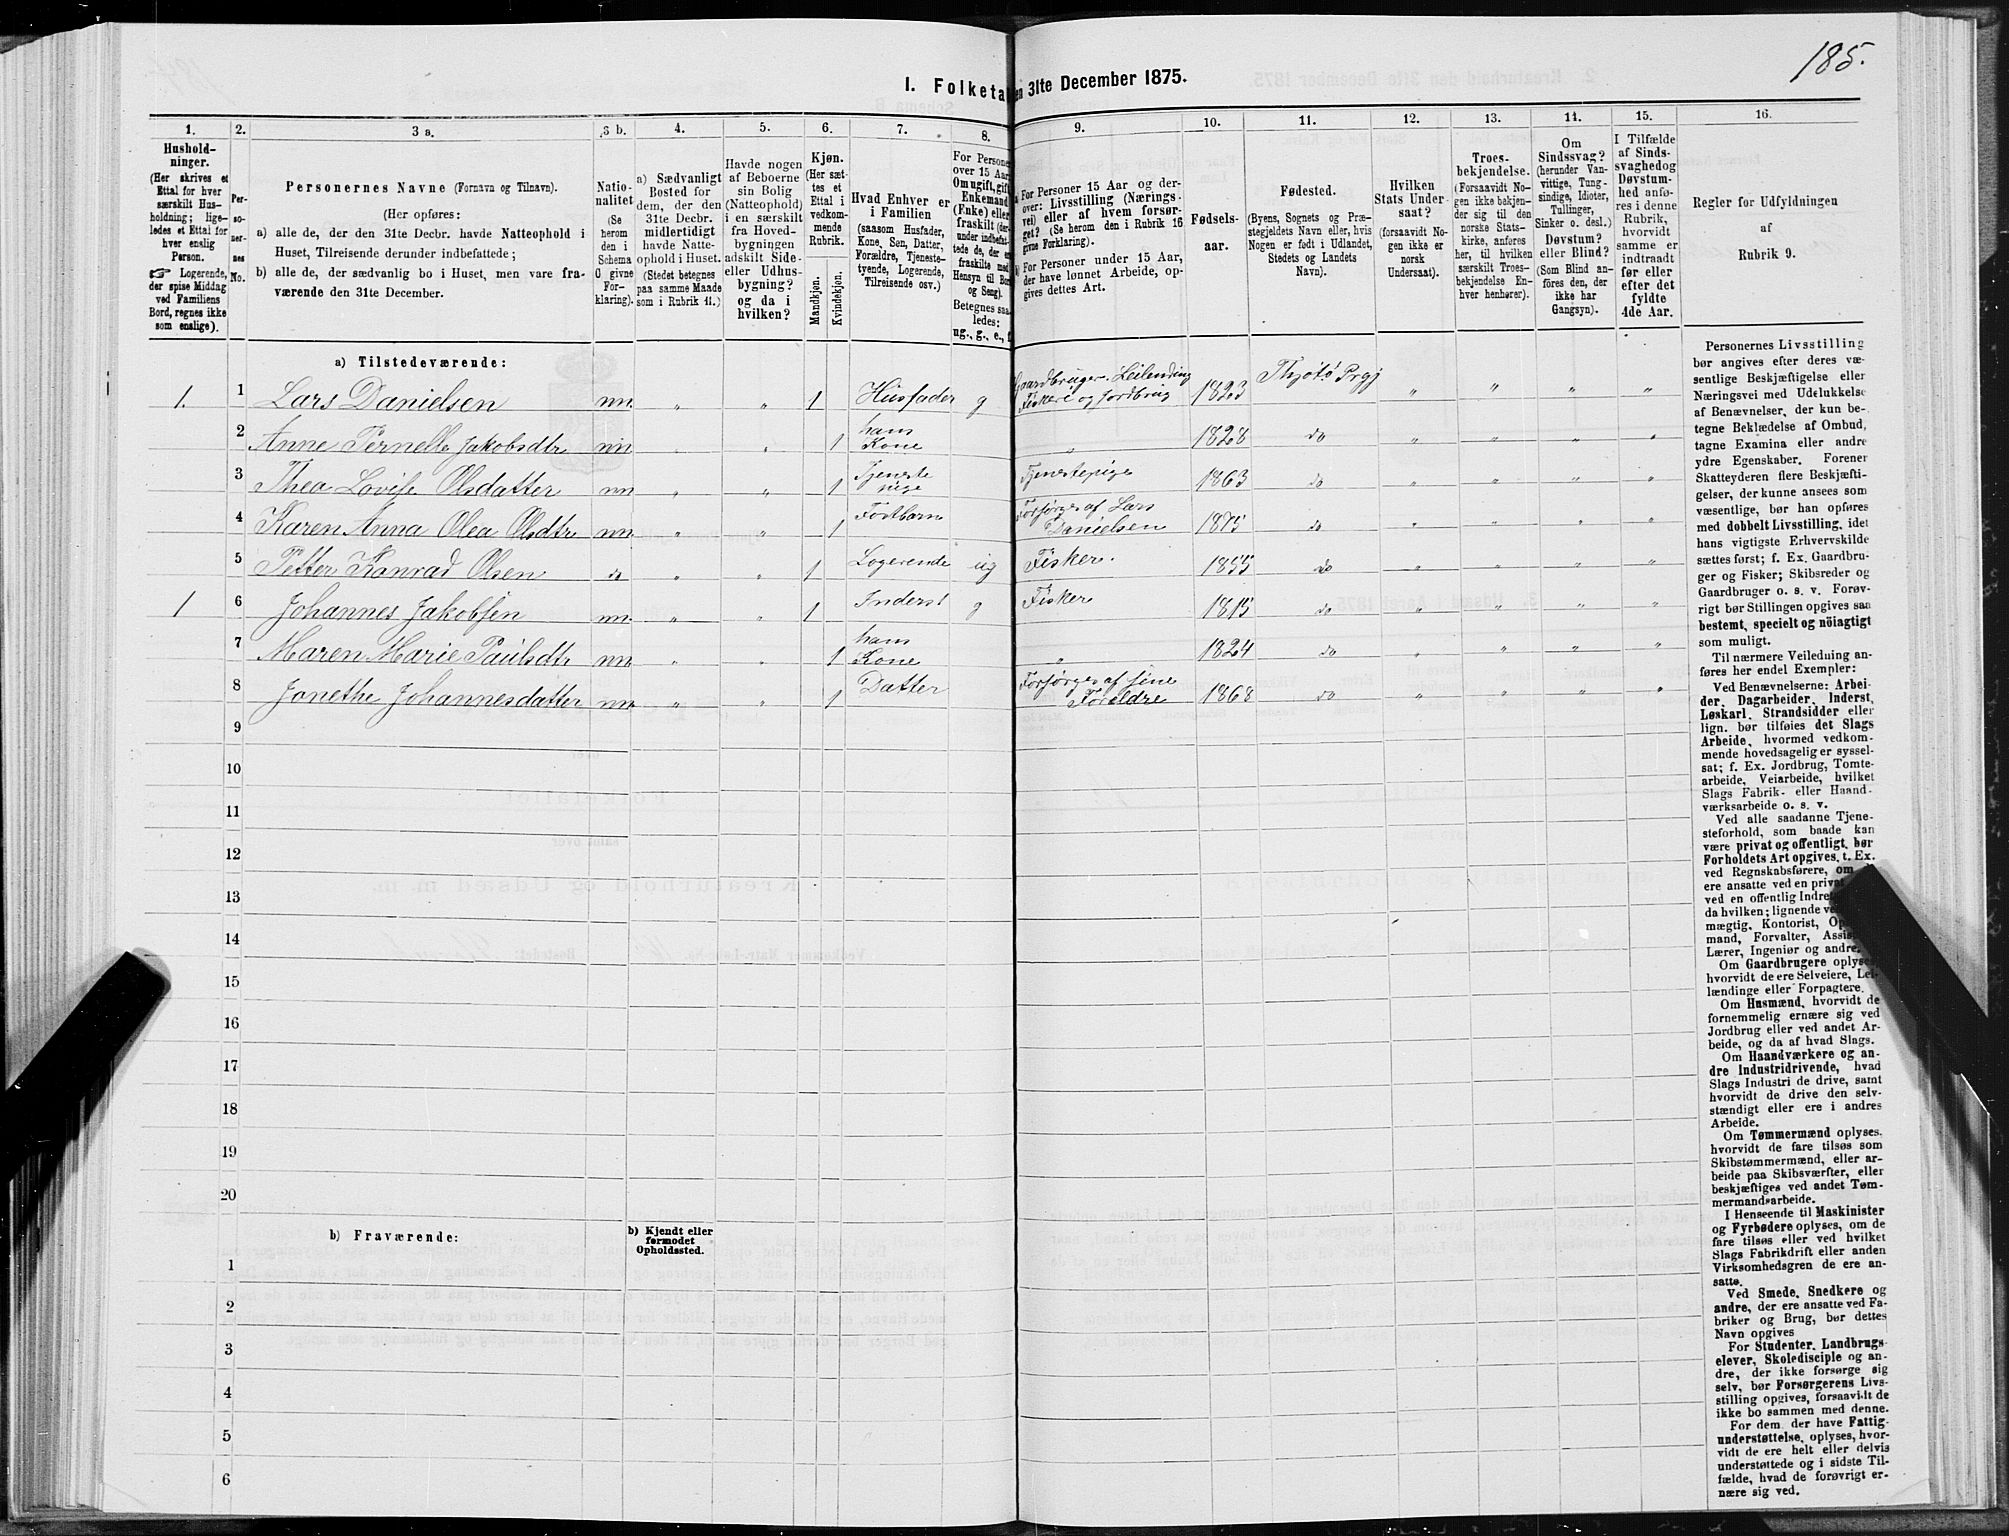 185.
I. Folketa en 31te December 1875.
1. 2. 3 a. 3 b. 4. 5. 6. 7. 8. 9. 10. 11. 12. 13. 14. 15. 16.
Hushold-
ninger.
(Her skrives et
Ettal for hver
særskilt Hus-
holdning; lige-
ledes et Ettal for
hver enslig
Person.
☞ Logerende,
der spise Middag
ved Familiens
Bord, regnes ikke
som enslige).
Per-
so-
ner-
nes
No.
Personernes Navne (Fornavn og Tilnavn).
(Her opføres:
a) alle de, der den 31te Decbr. havde Natteophold i
Huset, Tilreisende derunder indbefattede;
b) alle de, der sædvanlig bo i Huset, men vare fra-
værende den 31te December.
Natio-
nalitet
(Se
herom
den i
Schema
O givne
For-
klaring).
a) Sædvanligt
Bosted for
dem, der den
31te Decbr.
midlertidigt
havde Natte-
ophold i Huset.
(Stedet betegnes
paa samme Maade
som i Rubrik 11.)
Havde nogen
af Beboerne
sin Bolig
(Natteophold)
i en særskilt
fra Hoved-
bygningen
adskilt Side-
eller Udhus-
bygning?
og da i
hvilken?
Kjøn.
(Her sæt-
tes et
Ettal i
vedkom-
mende
Rubrik.
Mandkjøn.
Kvindekjøn.
Hvad Enhver er
i Familien
(saasom Husfader,
Kone, Søn, Datter,
Forældre, Tjeneste-
tyende, Logerende,
Tilreisende osv.)
For Persone
over 15 Aar
Om ugift, gift
Enkemand
(Enke) eller
fraskilt (der-
under indbefat-
tede de, der e
fraskilte med
Hensyn til Bo
og Seng).
Betegnes saa-
ledes:
ug., g., e., f
For Personer 15 Aar og der-
over: Livsstilling (Nærings-
vei) eller af hvem forsør-
get? (Se herom den i Rubrik 16
givne Forklaring).
For Personer under 15 Aar,
der have lønnet Arbeide, op-
gives dettes Art.
Fødsels-
aar.
Fødested.
(Byens, Sognets og Præ-
stegjeldets Navn eller, hvis
Nogen er født i Udlandet,
Stedets og Landets
Navn).
Hvilken
Stats Under-
saat?
(forsaavidt No-
gen ikke er
norsk
Undersaat).
Troes-
bekjendelse.
(Forsaavidt No-
gen ikke bekjen-
der sig til den
norske Stats-
kirke, anføres
her, til hvilken
særskilt Troes-
bekjendelse En-
hver henhører).
Om
Sindssvag?
(herunder Van-
vittige, Tung-
sindige, Idioter,
Tullinger,
Sinker o. desl.)
Døvstum?
eller Blind?
(Som Blind an-
føres den, der
ikke har
Gangsyn).
I Tilfælde
af Sinds-
svaghedog
Døvstum-
hed anfø-
res i denne
Rubrik,
hvorvidt
samme er
indtraadt
før eller
efter det
fyldte
4de Aar.
Regler for Udfyldningen
af
Rubrik 9.
a) Tilstedeværende:
1. 1 Lars Danielsen nn. „ „ 1 Husfader g Gaardbruger. Leilending Fiskeri og Jordbrug 1823 Thjøtø Prgj „ „ „ „
2 Anne Pernelle Jakobsdtr nn „ „ 1 hans Kone „ 1828 do „ „ „ „
3 Thea Lovise Olsdatter nn „ „ 1 Tjeneste pige Tjenestepige 1863 do „ „ „ „
4 Karen Anna Olea Olsdtr nn. „ „ 1 Fostbarn Forsørges af Lars Danielsen 1875 do „ „ „ „
5 Petter Konrad Olsen do „ „ 1 Logerende ug Fisker. 1855 do „ „ „ „
1 6 Johannes Jakobsen nn. „ „ 1 Inderst g Fisker 1815 do „ „ „ „
7 Maren Marie Paulsdtr nn. „ „ 1 hans Kone „ 1824 do „ „ „ „
8 Jonethe Johannesdatter nn. „ „ 1 Datter Forsørges af sine Forældre 1868 do „ „ „ „
9
10
11
12
13
14
15
16
17
18
19
20
b) Fraværende:
b) Kjendt eller
formodet
Opholdssted.
1
2
3
4
5
6
Personernes Livsstilling
bør angives efter deres væ-
sentlige Beskjæftigelse eller
Næringsvei med Udelukkelse
af Benævnelser, der kun be-
tegne Beklædelse af Ombud,
tagne Examina eller andre
ydre Egenskaber. Forener
Skatteyderen flere Beskjæfti-
gelser, der kunne ansees som
væsentlige, bør han opføres
med dobbelt Livsstilling, idet
hans vigtigste Erhvervskilde
sættes først; f. Ex. Gaardbru-
ger og Fisker; Skibsreder og
Gaardbruger o. s. v. Forøv-
rigt bør Stillingen opgives saa
bestemt, specielt og nöiagtigt
som muligt.
Til nærmere Veiledning an-
føres her endel Exempler:
Ved Benævnelserne: Arbei-
der, Dagarbeider, Inderst,
Løskarl, Strandsidder eller
lign. bør tilføies det Slags
Arbeide, hvormed vedkom-
mende hovedsagelig er syssel-
sat; f. Ex. Jordbrug, Tomte-
arbeide, Veiarbeide, hvilket
Slags Fabrik- eller Haand-
værksarbeide o. s. v.
Ved alle saadanne Tjene-
steforhold, som baade kan
være privat og offentligt, bør
Forholdets Art opgives, t. Ex.
ved Regnskabsførere, om
ere ansatte ved en privat
ved en offentlig Indret
da hvilken; lignende ve
mægtig, Kontorist, Op
mand, Forvalter, Assis
Lærer, Ingeniør og andre.
Om Gaardbrugere oplyses,
hvorvidt de ere Selveiere, Lei-
lændinge eller Forpagtere.
Om Husmænd, hvorvidt de
fornemmelig ernære sig ved
Jordbrug eller ved andet Ar-
beide, og da af hvad Slags.
Om Haandværkere og an-
dre Industridrivende, hvad
Slags Industri de drive, samt
hvorvidt de drive den selv-
stændigt eller ere i andres
Arbeide.
Om Tømmermænd oplyses,
hvorvidt de fare tilsøs som
Skibstømmermænd, eller ar-
beide paa Skibsværfter, eller
beskjæftiges ved andet Tøm-
mermandsarbeide.
I Henseende til Maskinister
og Fyrbødere oplyses, om de
fare tilsøs eller ved hvilket
Slags Fabrikdrift eller anden
Virksomhedsgren de ere an-
satte.
Ved Smede, Snedkere og
andre, der ere ansatte ved Fa-
briker og Brug, bør dettes
Navn opgives
For Studenter, Landbrugs-
elever, Skoledisciple og an-
dre, der ikke forsørge sig
selv, bør Forsørgerens Livs-
stilling opgives, forsaavidt de
ikke bo sammen med denne.
For dem, der have Fattig-
understøttelse, oplyses, hvor-
vidt de ere helt eller delvis
understøttede og i sidste Til-
fælde, hvad de forøvrigt er-
nære sig ved.